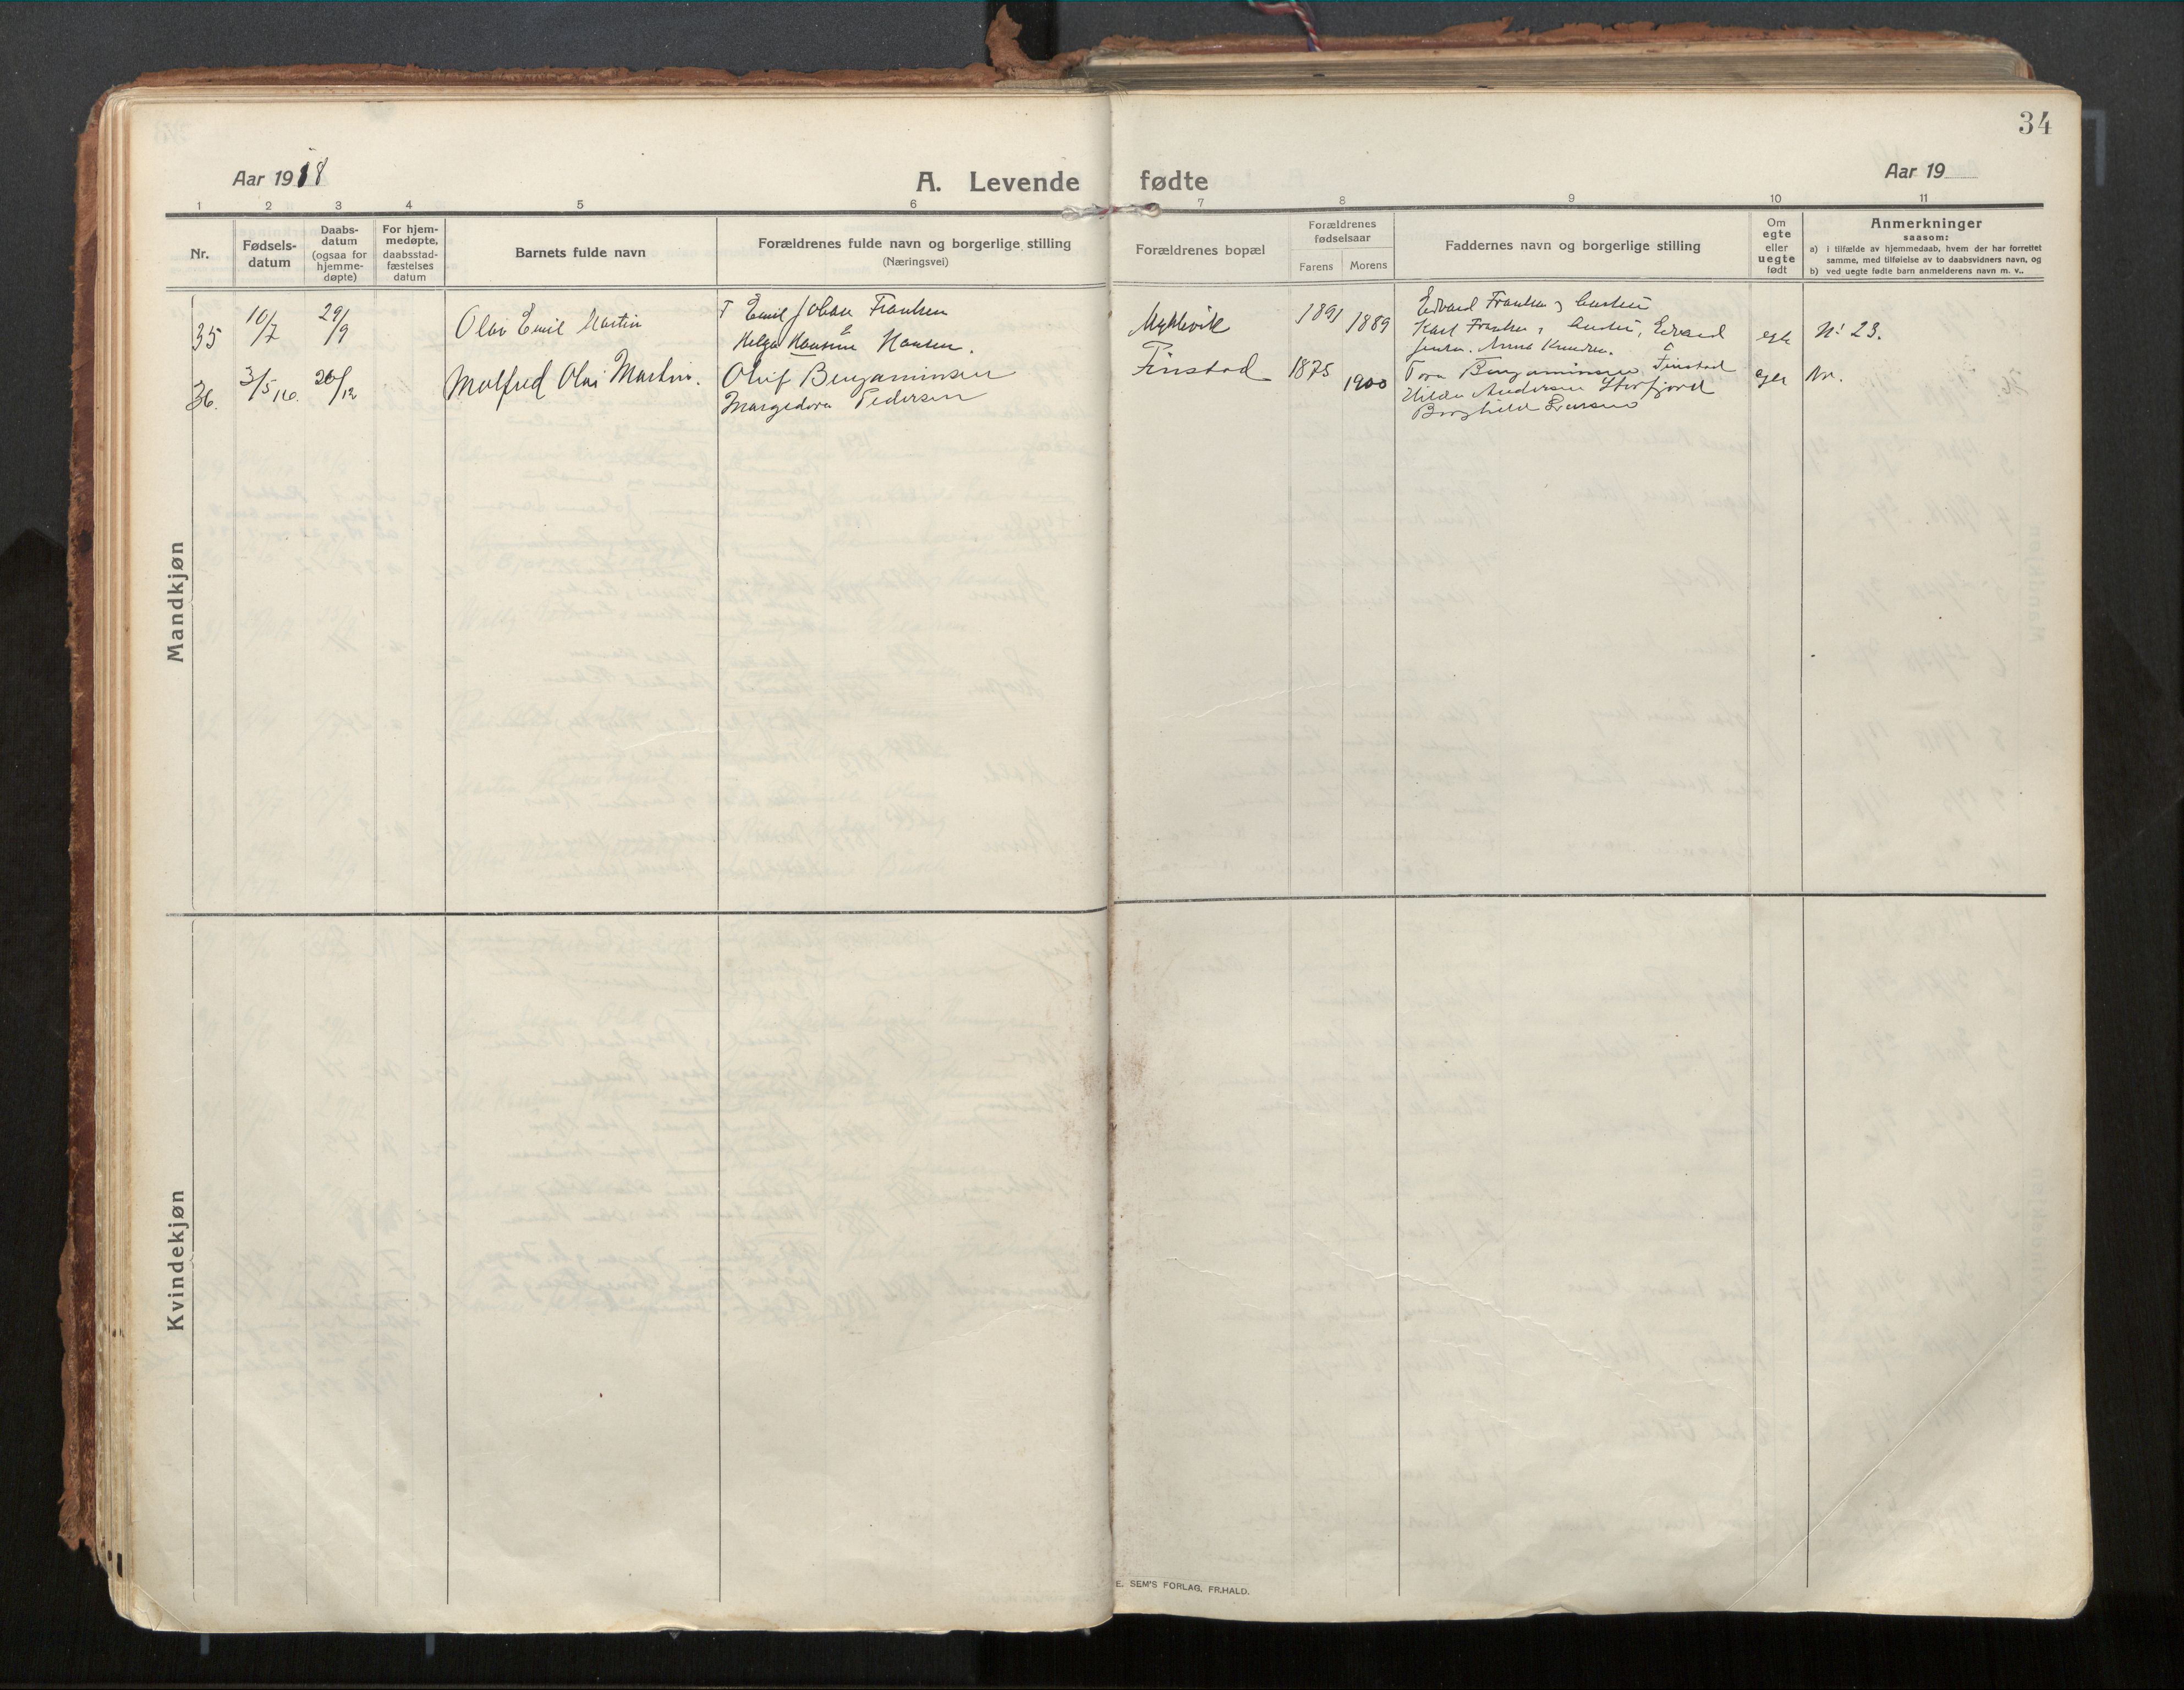 34
Aar 1918
A. Levende fødte
Aar 19
1 2 3 4 5 6 7 8 9 10 11
Nr.
Fødsels-
datum
Daabs-
datum
(ogsaa for
hjemme-
døpte)
For hjem-
medøpte,
daabsstad-
fæstelses
datum
Barnets fulde navn
Forældrenes fulde navn og borgerlige stilling
(Næringsvei)
Forældrenes bopæl
Forældrenes
fødselsaar
Farens Morens
Faddernes navn og borgerlige stilling
Om
egte
eller
uegte
født
Anmerkninger
saasom:
a) i tilfælde av hjemmedaab, hvem der har forrettet
samme, med tilføielse av to daabsvidners navn, og
b) ved uegte fødte barn anmelderens navn m. v..
Mandkjøn
35 10/7 29/9 Olav Emil Martin
Emil Johan Frantsen
Helga Hansine Hansen.
Myklevik 1891 1889
Edvard Frantsen, hustru
Karl Frantsen, hustru, Edvard
Jensen. Anna Knudsen.
egte Nr 23.
36. 3/5 16. 26/12 Malfred Olai Martin.
Oluf Benjaminsen
Margedora Pedersen
Finstad 1875 1900
Tora Benjaminsen Finstad
Hilda Andersen Storfjord
Borghild Larsen
egte Nr.
Kvindekjøn
E. SEM'S FORLAG, FR.HALD.